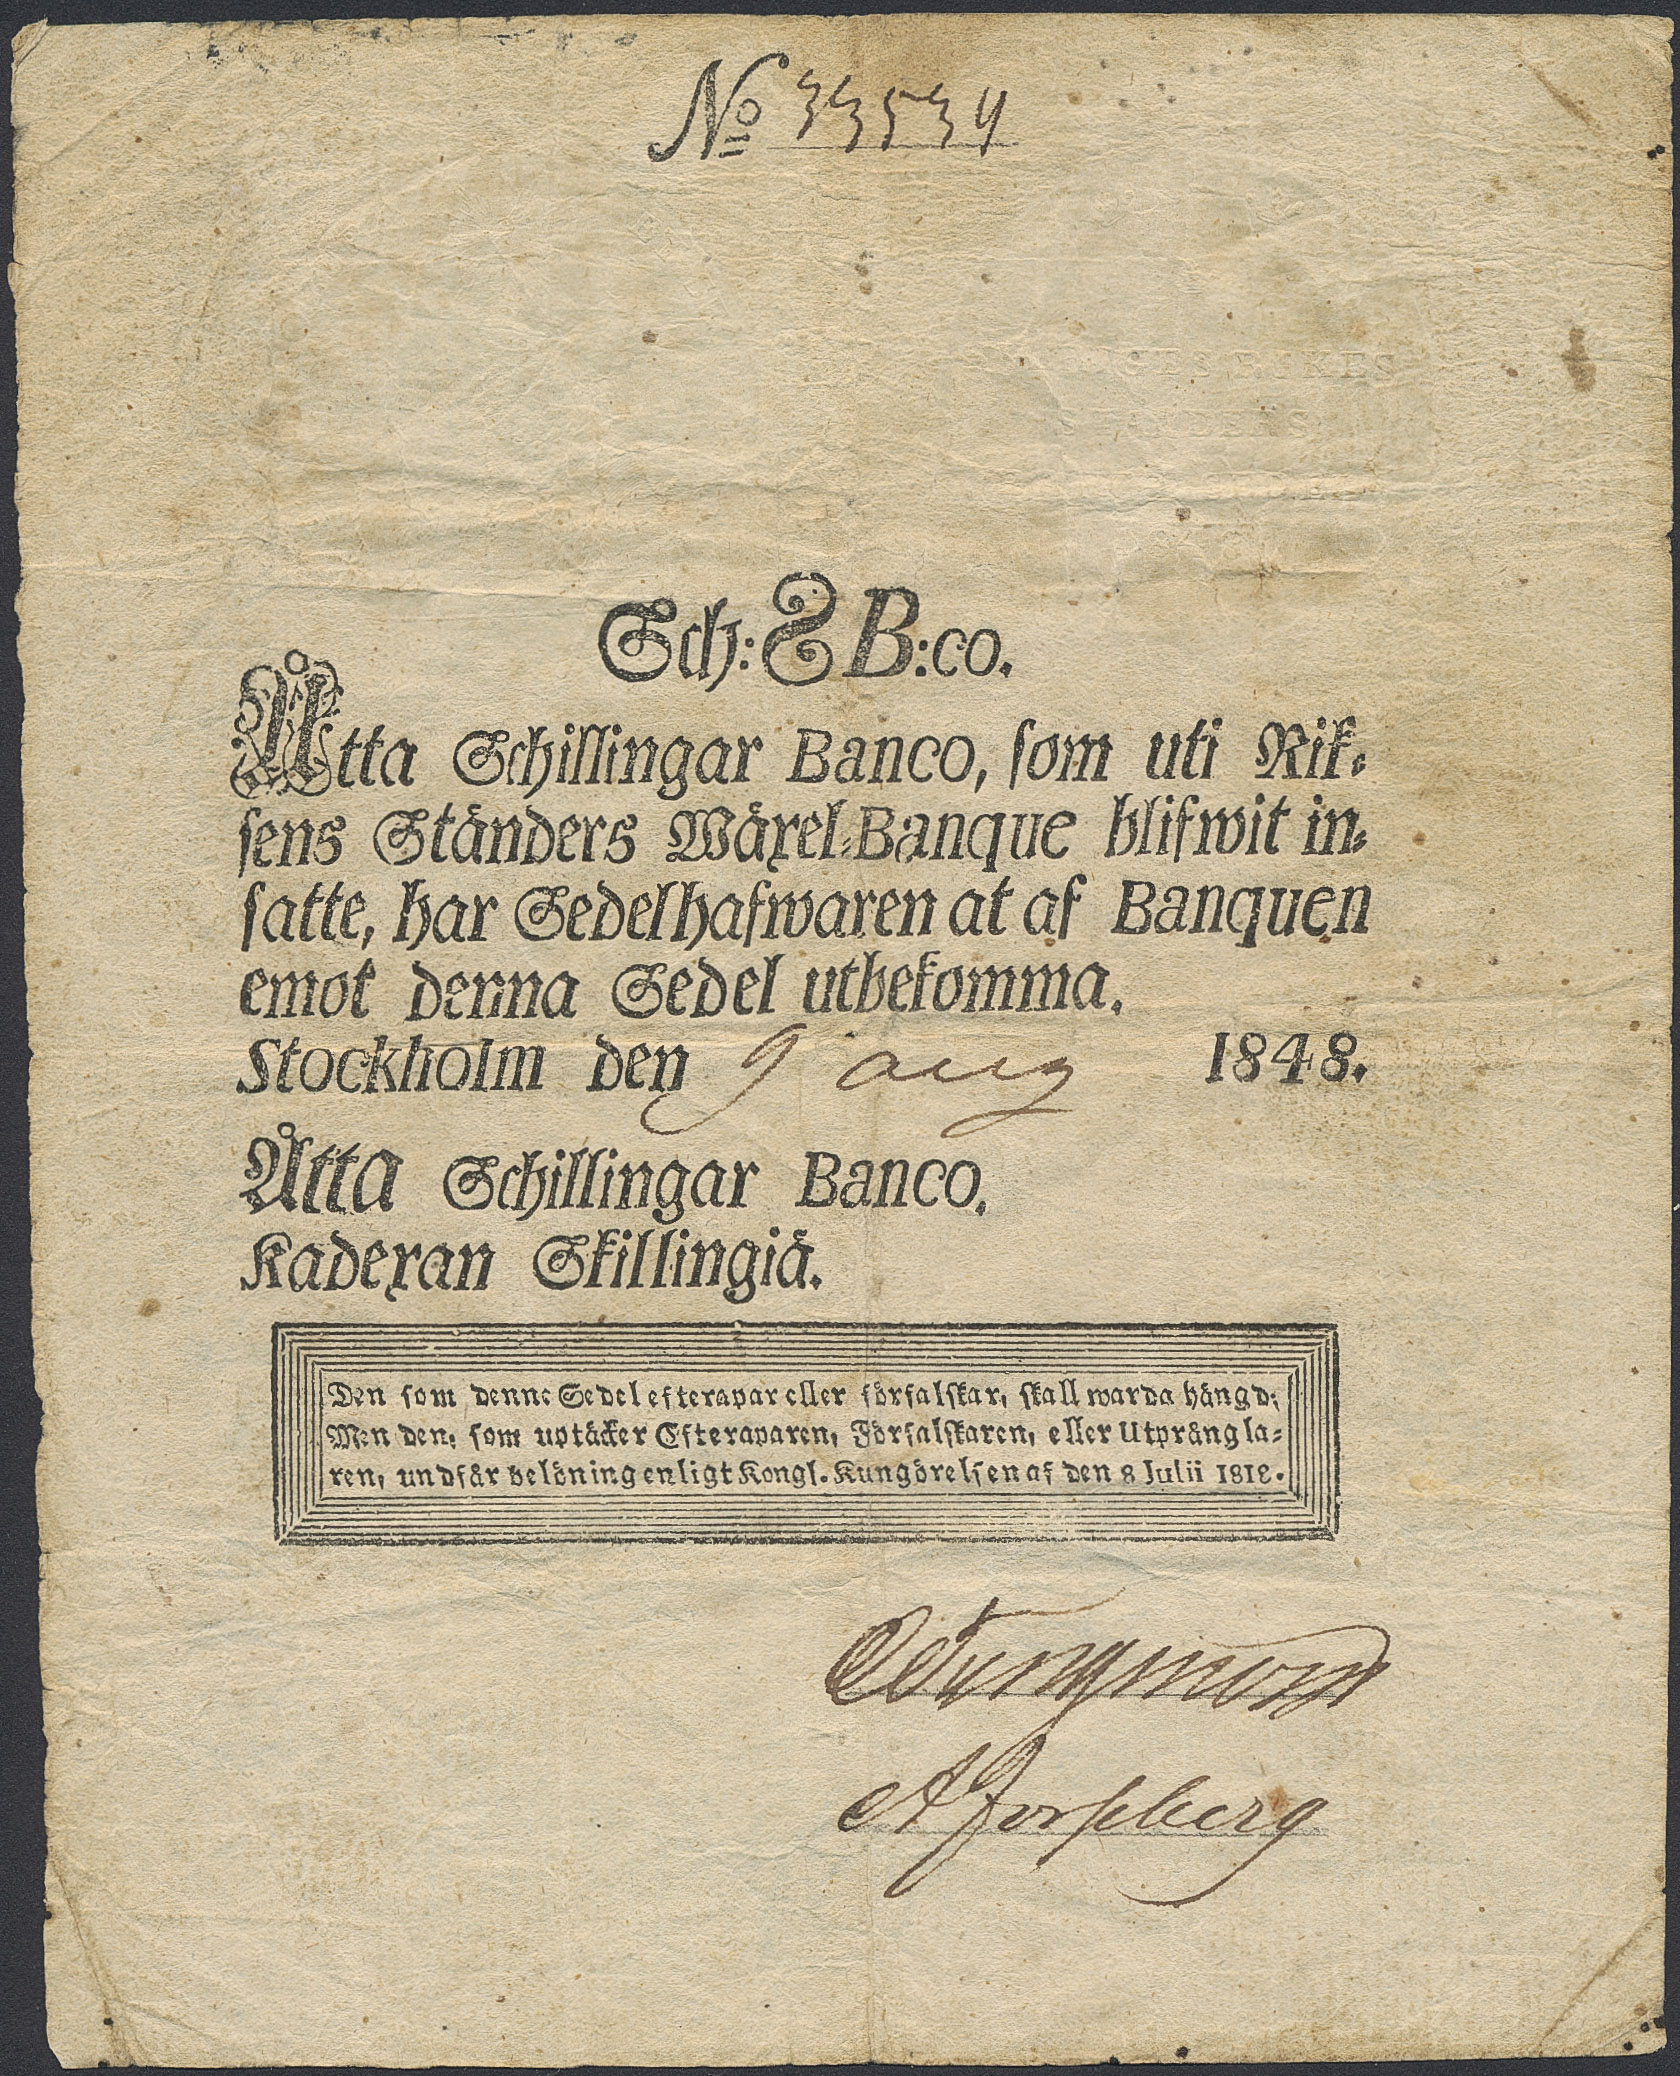 No 33534
Sch: 8 B:co.
Åtta Schillingar Banco, som uti Rik-
sens Ständers Wäxel-Banque blifwit in-
satte, har Sedelhafwaren at af Banquen
emot denna Sedel utbekomma.
Stockholm den 9 aug 1848.
Åtta Schillingar Banco.
Kadexan Skillingiä.
Den som denne Sedel efterapar eller förfalskar, skall warda hängd;
Men den, som uptäcker Efteraparen, Förfalskaren, eller Utprängla-
ren, undfår belöning enligt Kongl. Kungörelsen af den 8 Julii 1818.
A Forssberg